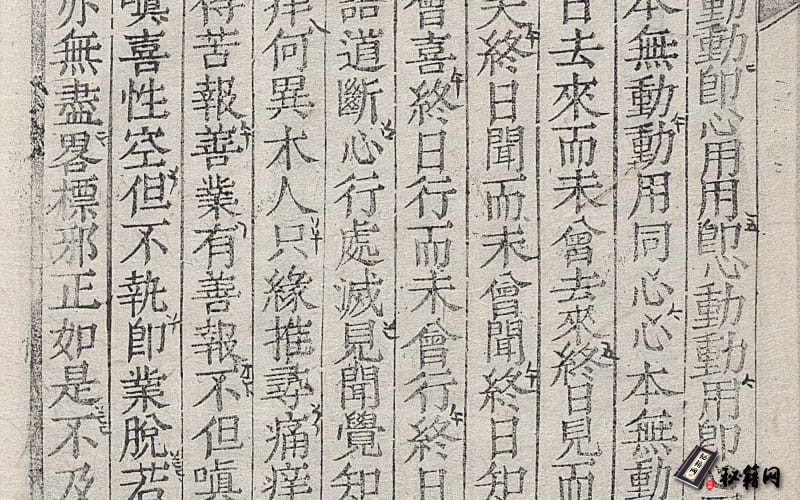 動動卽心用用卽心動動用卽
本無動動用同心心本無動
日去來而未曾去來終日見而
笑終日聞而未曾聞終日知
曾喜終日行而未曾行終日
語道斷心行處滅見聞覺知
痒何異木人只緣推尋痛痒
得苦報善業有善報不但嗔
嗔喜性空但不執卽業脫若
亦無盡畧標邪正如是不及
秘籍网